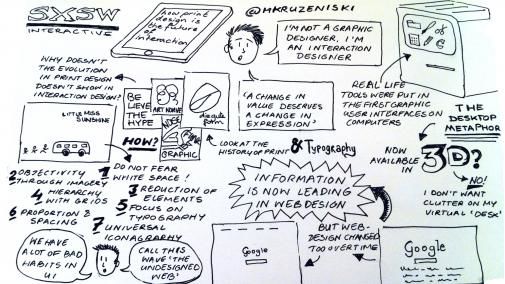 SXSW
INTERACTIVE
how print
design is the
future of
interaction
@MKRUZENISKI
I'M NOT A GRAPHIC
DESIGNER, I'M
AN INTERACTION
DESIGNER
WHY DOESN'T
THE EVOLUTION
IN PRINT DESIGN
DOESN'T SHOW IN
INTERACTION DESIGN?
BE
LIEVE
THE
HYPE
ART NOUVE
GRAPHIC
'A CHANGE IN
VALUE DESERVES
A CHANGE IN
EXPRESSION!'
REAL LIFE
TOOLS WERE PUT IN
THE FIRST GRAPHIC
USER INTERFACES ON
COMPUTERS
LITTLE MISS
SUNSHINE
HOW?
LOOK AT THE
HISTORY OF PRINT & Typography
THE
DESKTOP
METAPHOR
NOW
AVAILABLE
IN
3D?
NO!
I DON'T WANT
CLUTTER ON MY
VIRTUAL 'DESK'
1 DO NOT FEAR
WHITE SPACE!
2 OBJECTIVITY
THROUGH IMAGERY
3 REDUCTION OF
ELEMENTS
4 HIERARCHY
WITH GRIDS
5 FOCUS ON
TYPOGRAPHY
6 PROPORTION &
SPACING
7 UNIVERSAL
ICONAGRAPHY
INFORMATION
IS NOW LEADING
IN WEB DESIGN
WE HAVE
A LOT OF BAD
HABITS IN
UI
CALL THIS
WAVE 'THE
UNDESIGNED
WEB'
Google
BUT WEB-
DESIGN CHANGED
TOO OVER TIME
Google